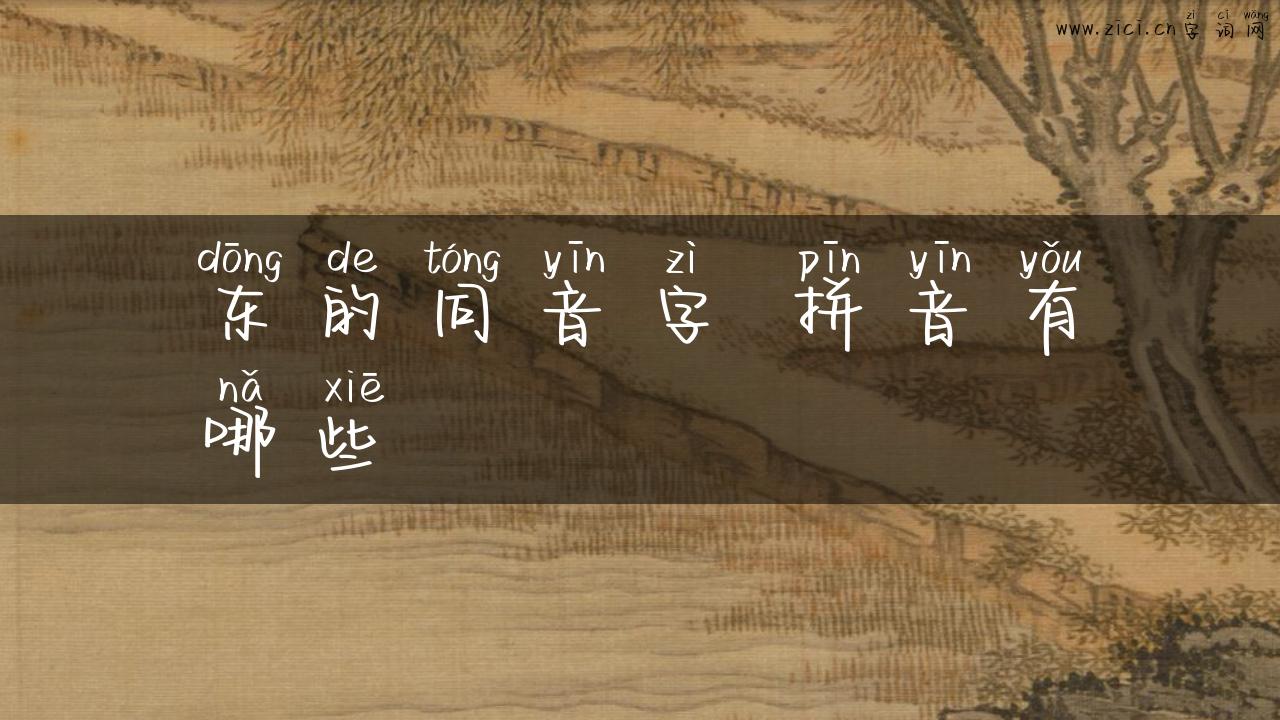 zì cí wǎng
www.zici.cn 字 词 网
dōng de tóng yīn zì pīn yīn yǒu
东 的 同 音 字 拼 音 有
nǎ xiē
哪 些